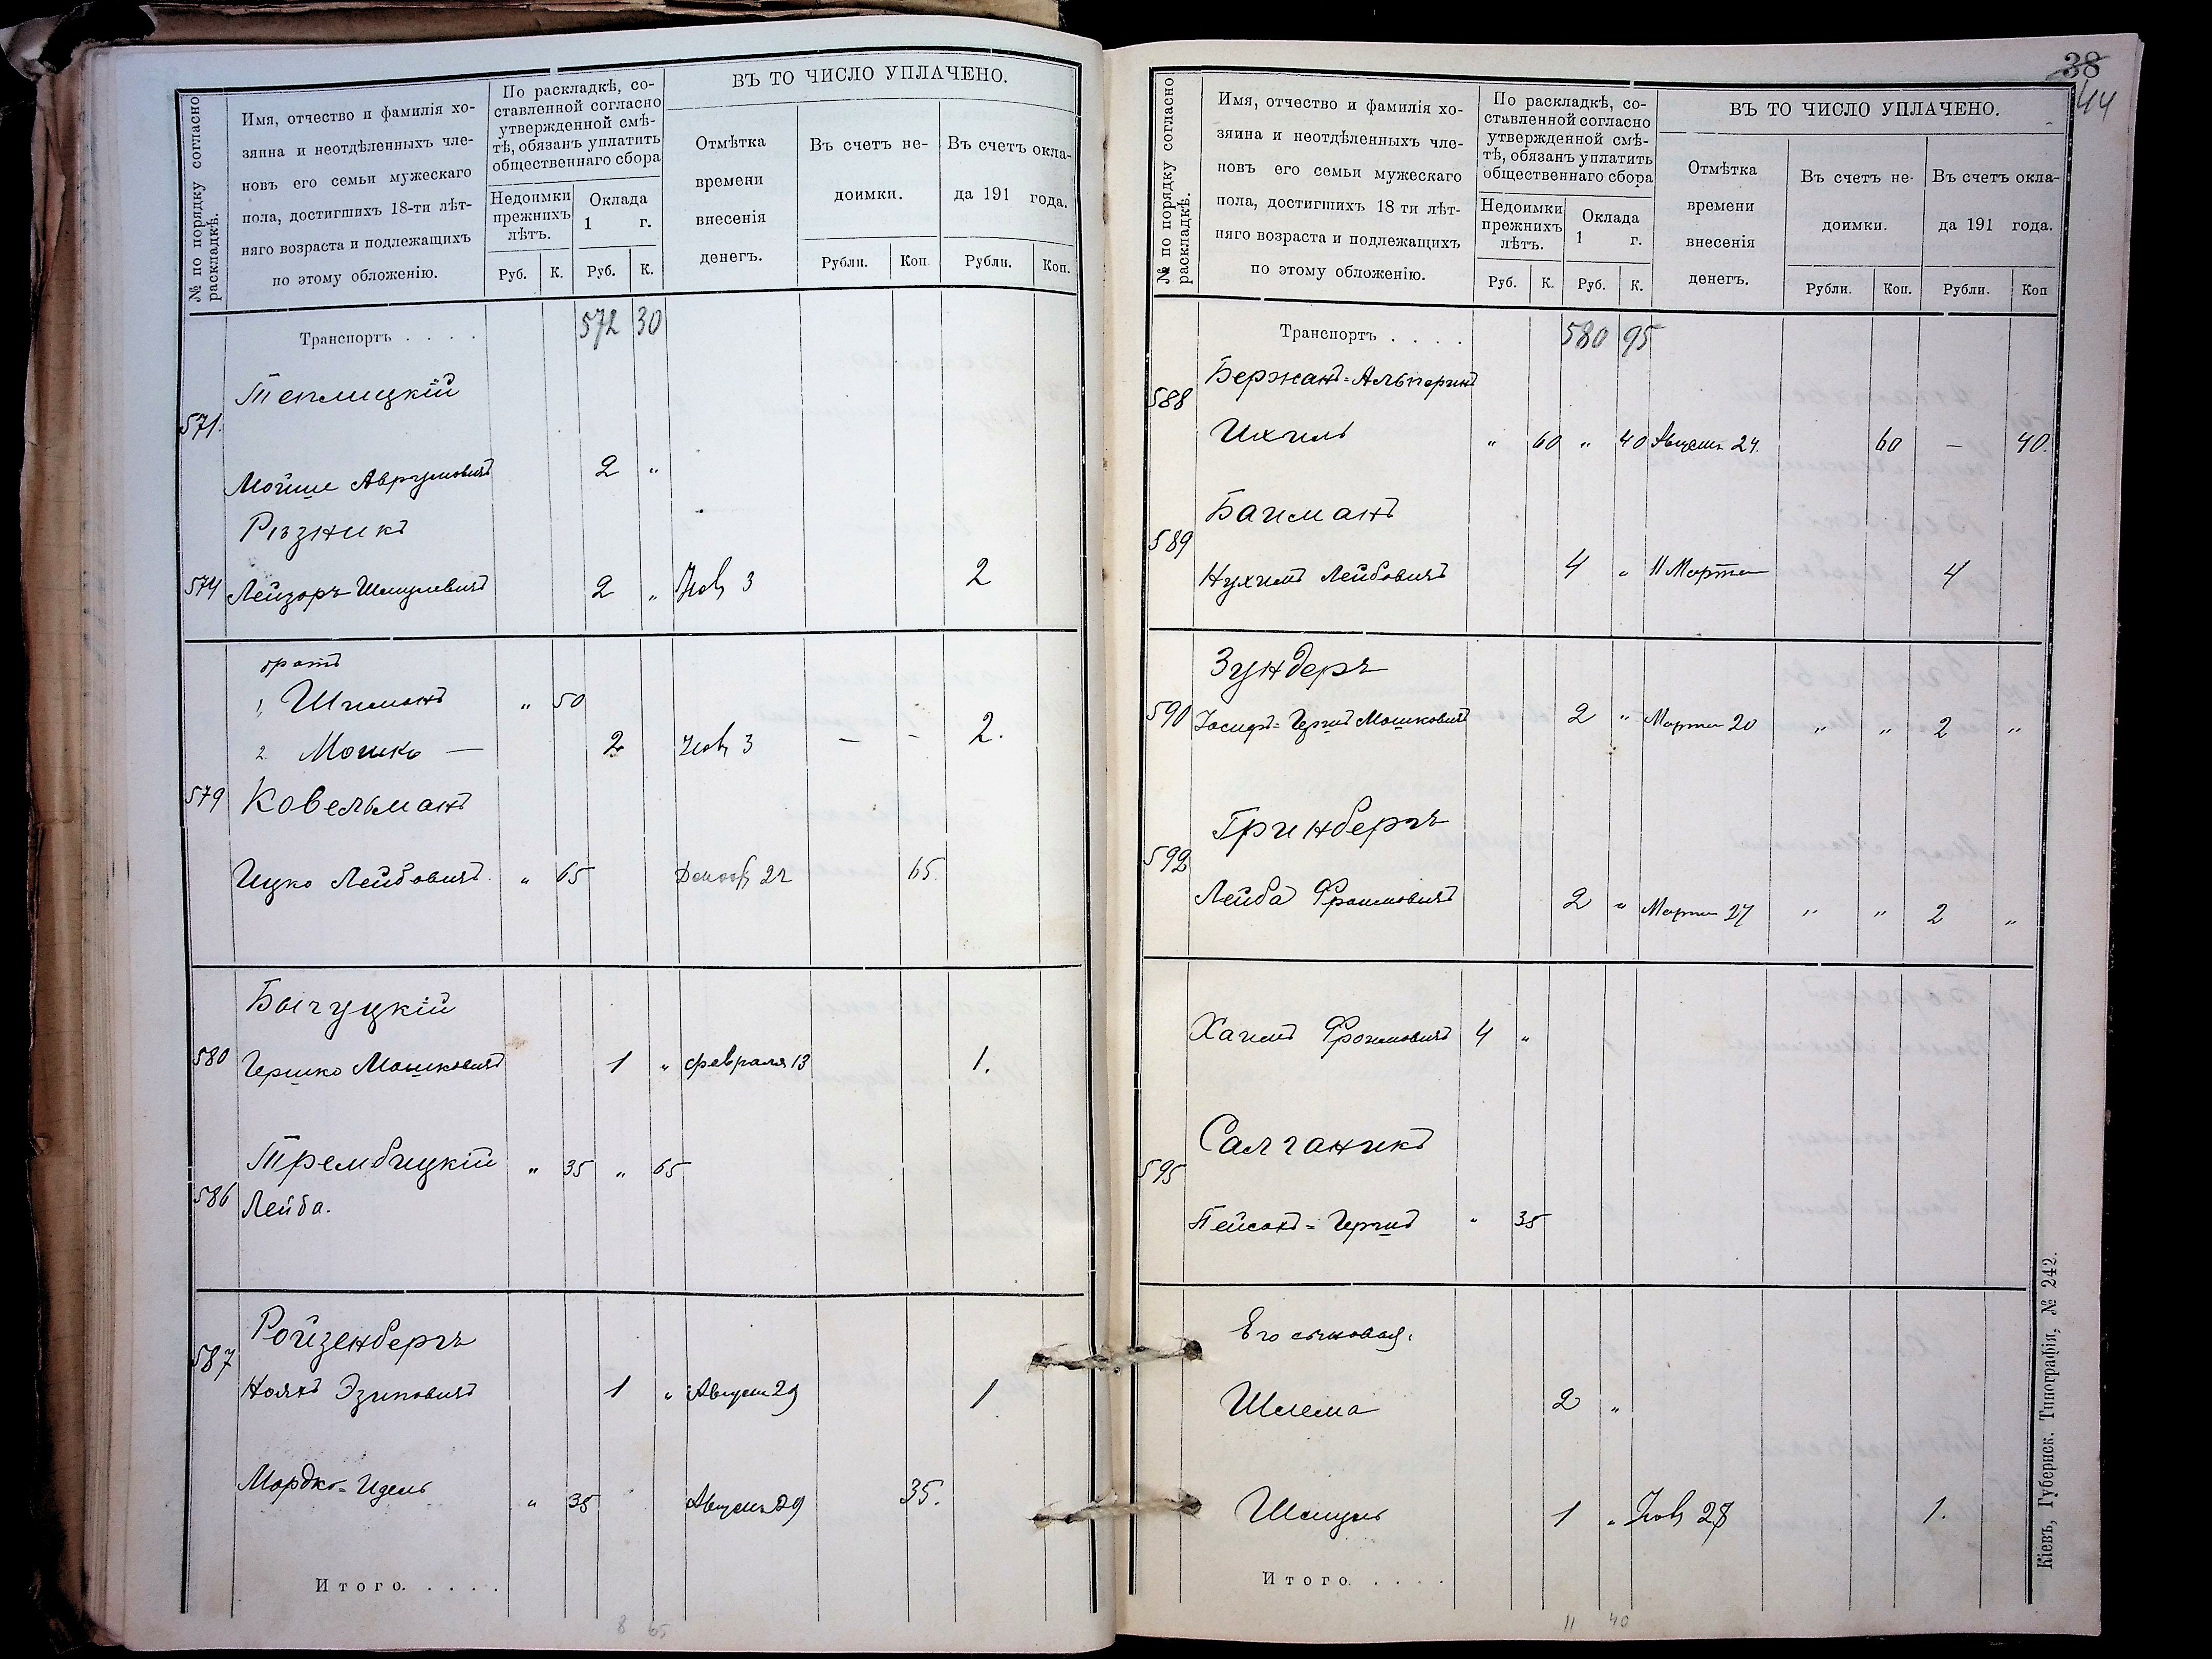 № по порядку согласно
раскладкѣ.
Имя, отчество и фамилія хо-
зяина и неотдѣленныхъ чле-
новъ его семьи мужескаго
пола, достигшихъ 18-ти лѣт-
няго возраста и подлежащихъ
по этому обложенію.
По раскладкѣ, со-
ставленной согласно
утвержденной смѣ-
тѣ, обязанъ уплатить
общественнаго сбора
Недоимки
прежнихъ
лѣтъ.
Оклада
1 г.
Руб. К. Руб. К.
ВЪ ТО ЧИСЛО УПЛАЧЕНО.
Отмѣтка
времени
внесенія
денегъ.
Въ счетъ не-
доимки.
Рубли. Коп.
Въ счетъ окла-
да 191 года.
Рубли. Коп.
Транспортъ . . . . 572 30
Теплицкій
571.
Мойше Аврумовичъ 2 "
Рѣзникъ
574 Лейзоръ Шмулевичъ 2 " Нояб 3 2
братъ
1, Шимонъ " 50
2. Мошко — 2 Нояб 3 — - 2.
579 Ковельманъ
Ицко Лейбовичъ. " 65 Декабр 22 65.
Бычуцкій
580 Гершко Мошковичъ 1 " февраля 13 1.
Трембицкій " 35 " 65
586 Лейба.
Ройзенбергъ
587
Нояхъ Эзиковичъ 1 " Август 29 1
Мордко-Идель " 35 Август 29 35.
Итого. . . . .
8 65
38
44
№ по порядку согласно
раскладкѣ.
Имя, отчество и фамилія хо-
зяина и неотдѣленныхъ чле-
новъ его семьи мужескаго
пола, достигшихъ 18 ти лѣт-
няго возраста и подлежащихъ
по этому обложенію.
По раскладкѣ, со-
ставленной согласно
утвержденной смѣ-
тѣ, обязанъ уплатить
общественнаго сбора
Недоимки
прежнихъ
лѣтъ.
Оклада
1 г.
Руб. К. Руб. К.
ВЪ ТО ЧИСЛО УПЛАЧЕНО.
Отмѣтка
времени
внесенія
денегъ.
Въ счетъ не-
доимки.
Рубли. Коп.
Въ счетъ окла-
да 191 года.
Рубли. Коп
Транспортъ . . . . 580 95
Бержанъ-Альперинъ
588
Ихиль " 60 " 40 Август 24. 60 — 40.
Байманъ
589
Нухимъ Лейбовичъ 4 " 11 Марта 4
Зундеръ
590 Іосифъ-Гершъ Мошковичъ 2 " Марта 20 " " 2 "
Гринбергъ
592
Лейба Фроимовичъ 2 " Марта 27 " " 2 "
Хаимъ Фроимовичъ 4 "
Салганикъ
595
Пейсахъ-Гершъ " 35
Его сыновья.
Шлема 2 "
Шмуль 1 " Нояб 28 1.
Итого. . . . .
11 40
Кіевъ, Губернск. Типографія, № 242.